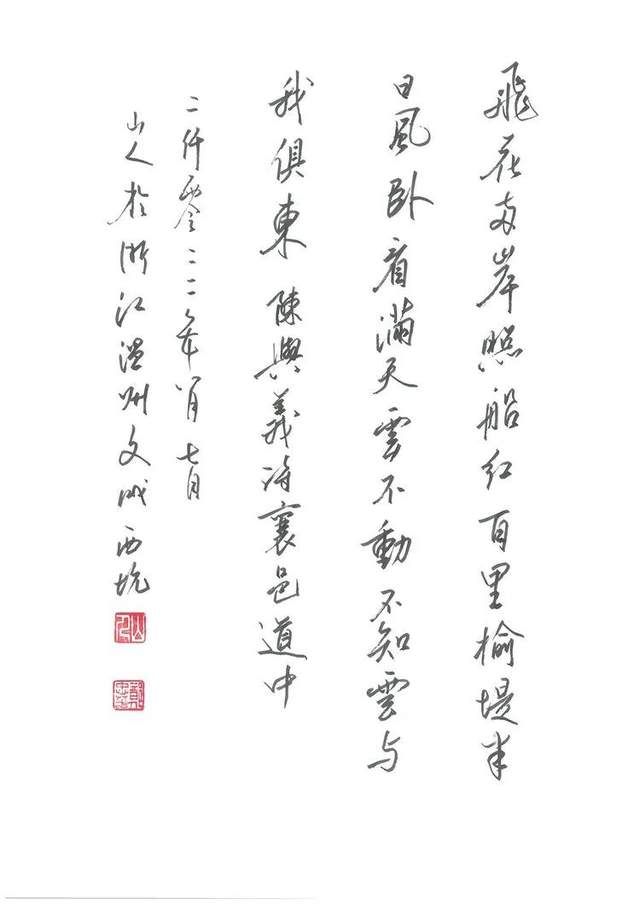 飛花两岸照船红百里榆堤半
日風卧看滿天雲不動不知雲与
我俱東 陳與義詩襄邑道中
二仟零二二年八月七
山人於浙江温州文成西坑
山人